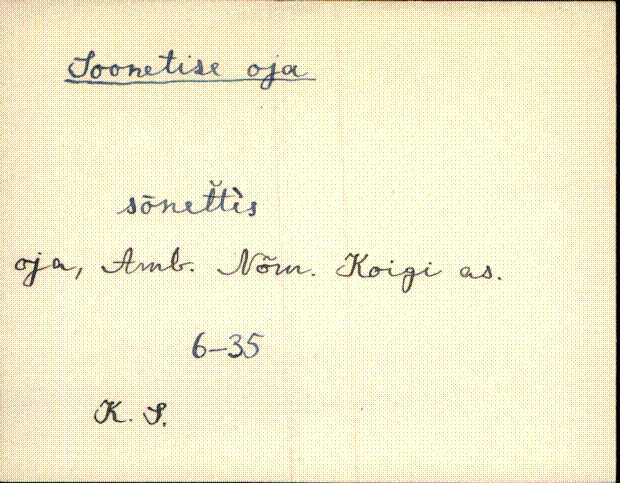 Soonetise oja
sōnet̆t̀is
oja, Amb. Nõm. Koigi as.
6-35
K. S.